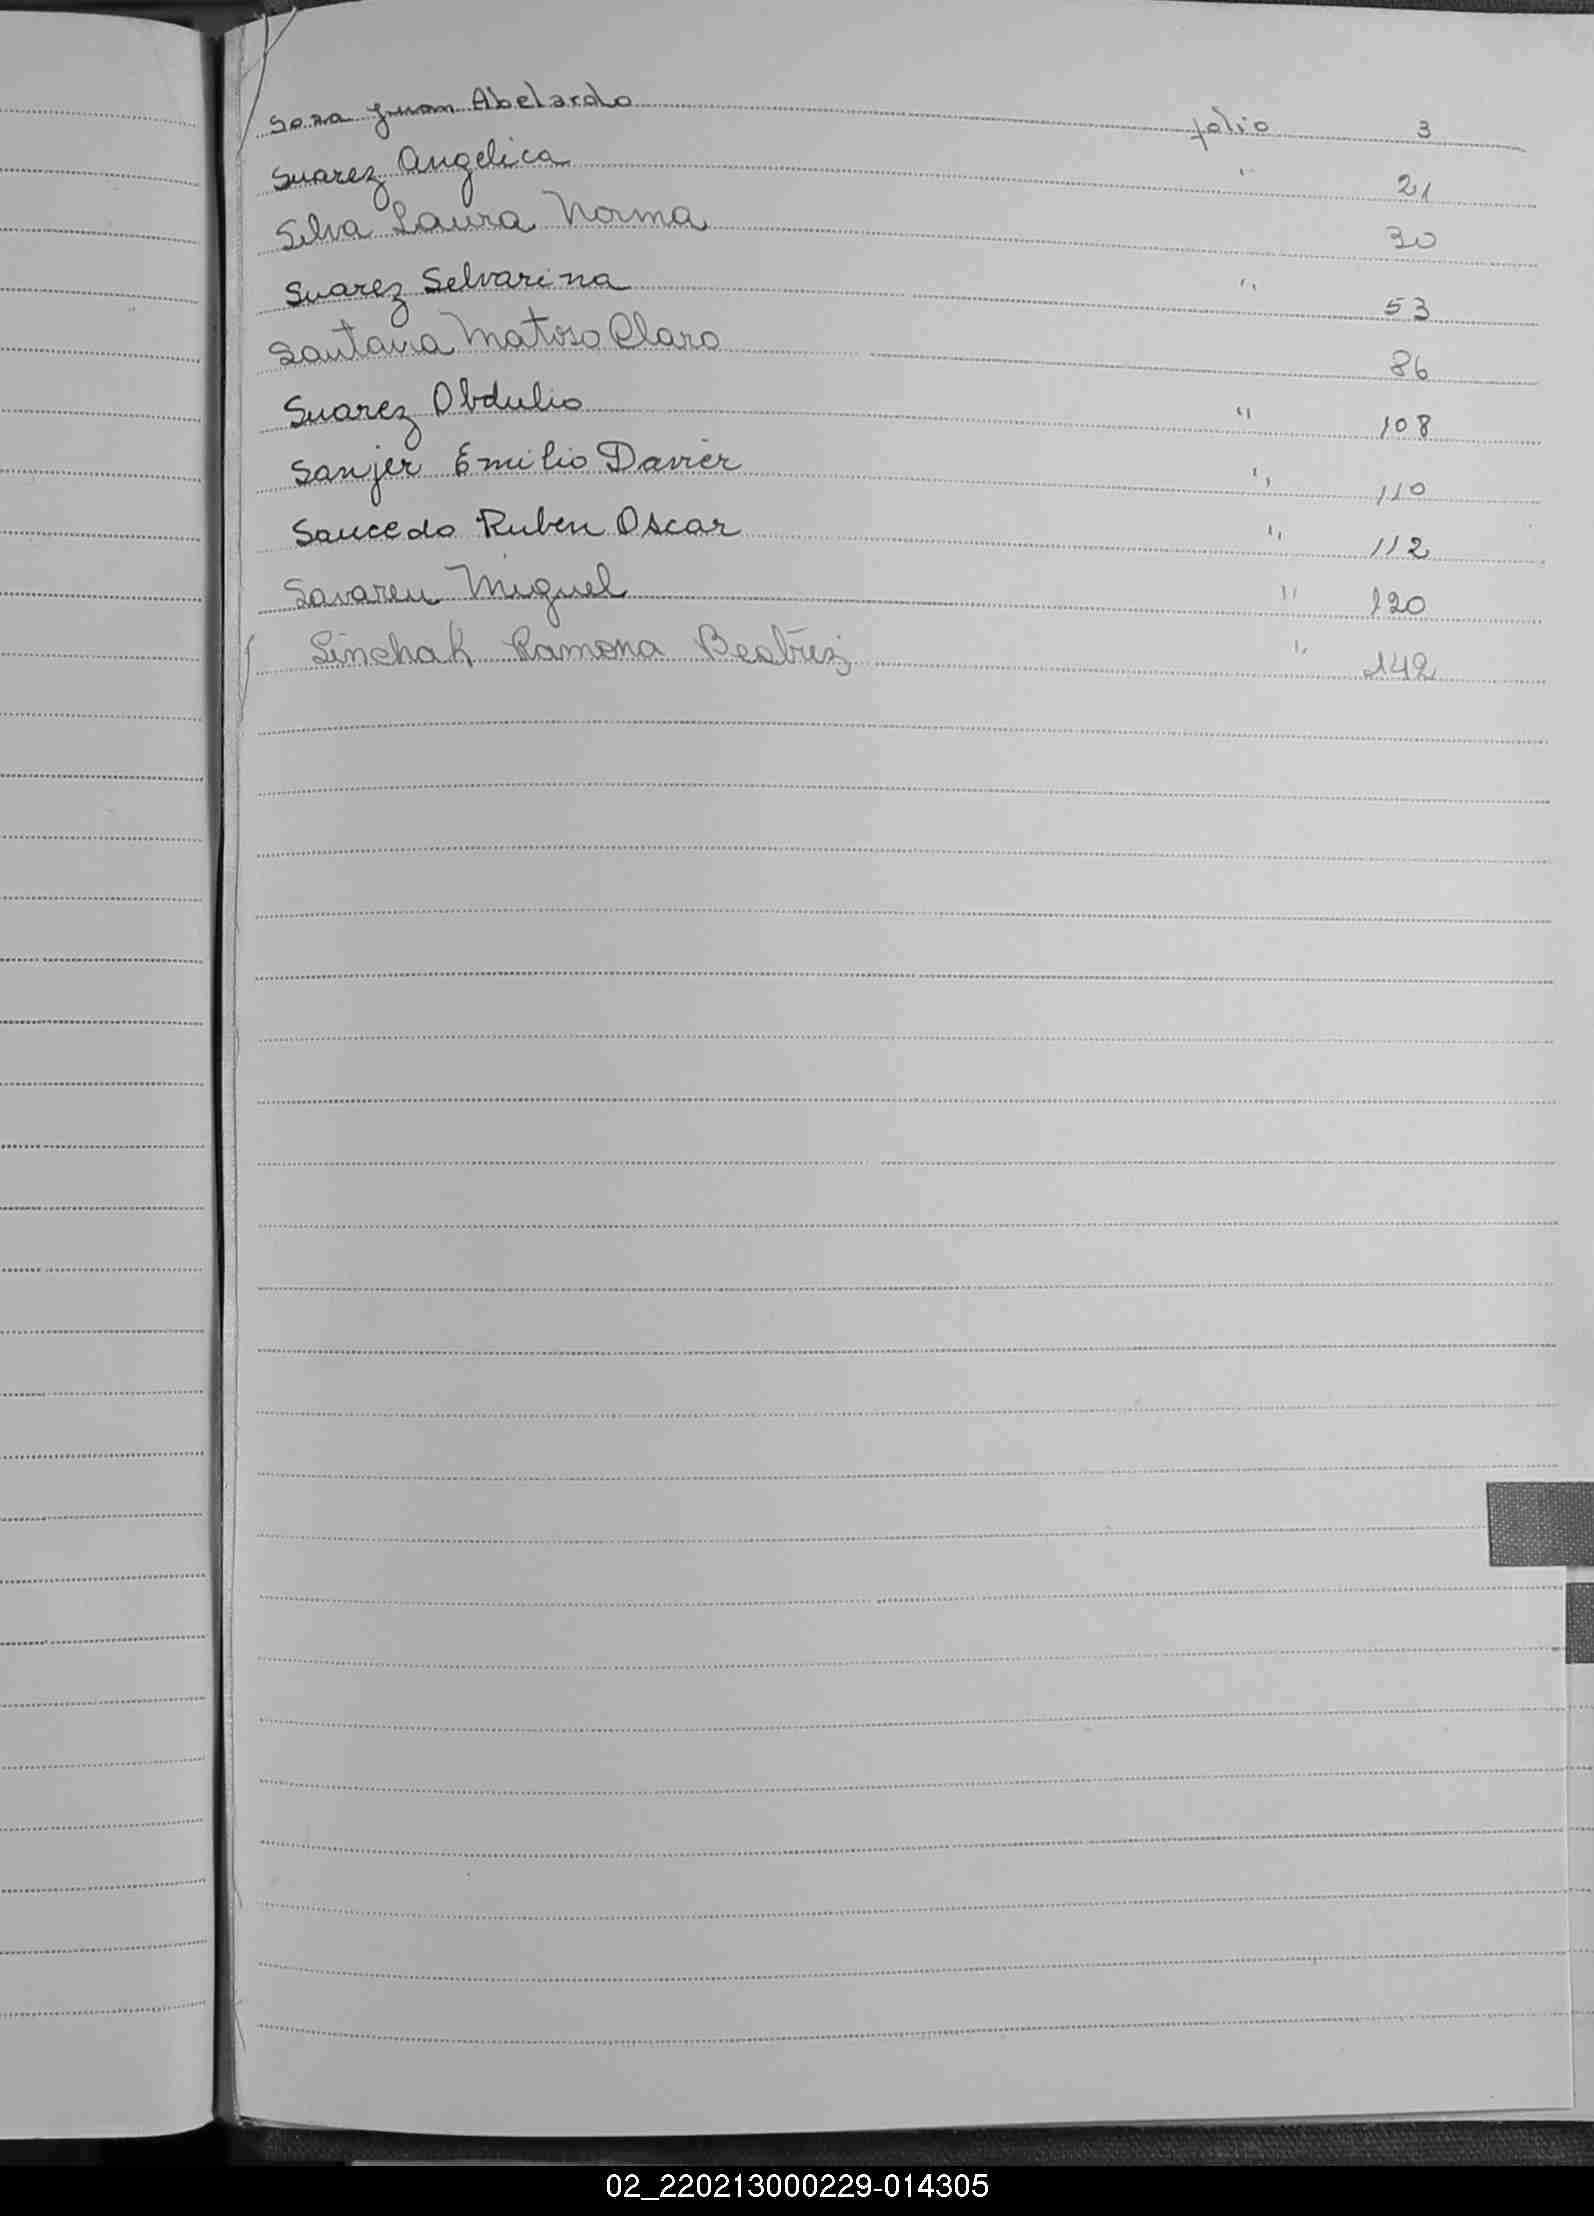 Soza Juan Abelardo folio 3
Suarez Angelica " 21
Silva Laura Norma 30
Suarez Selvarina " 53
Santana Matoso Claro 86
Suarez Obdulio " 108
Sanjer Emilio Davier " 110
Saucedo Ruben Oscar " 112
Savareu Miguel " 120
Sinchak Ramona Beatriz " 142
02_220213000229-014305